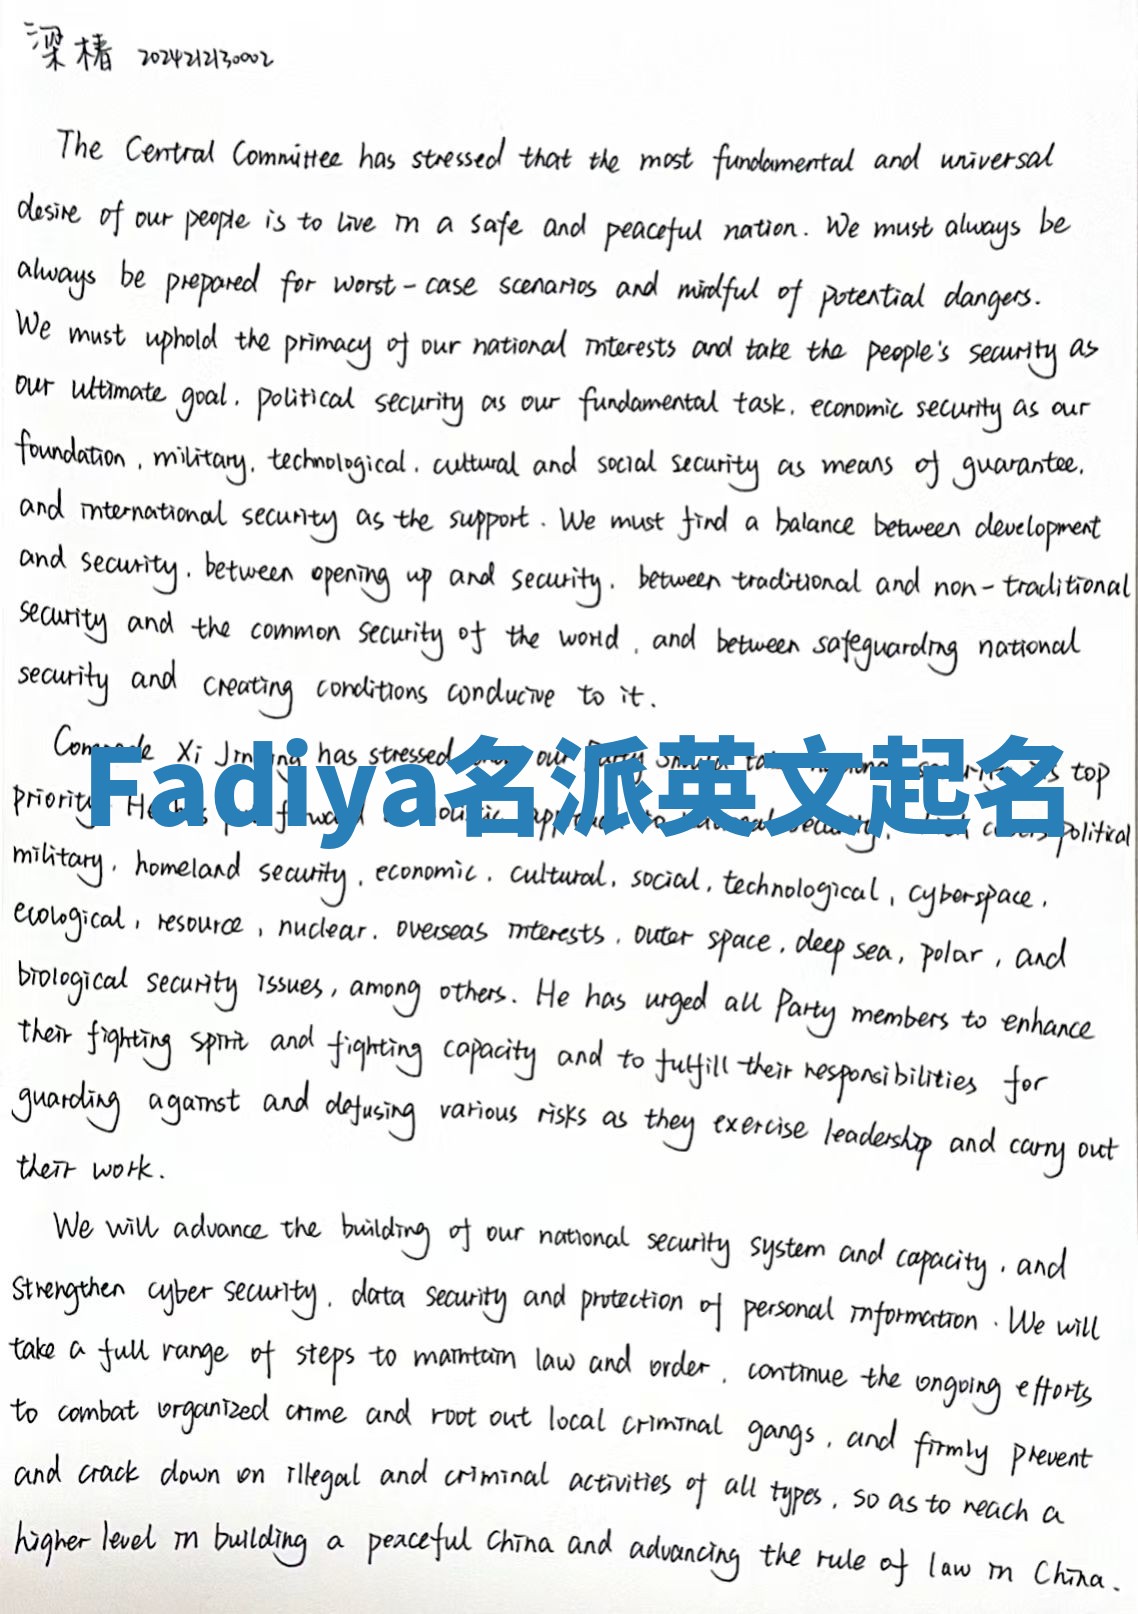 梁楮 2024212130002
The Central Committee has stressed that the most fundamental and universal
desire of our people is to live in a safe and peaceful nation. We must always be
always be prepared for worst-case scenarios and mindful of potential dangers.
We must uphold the primacy of our national interests and take the people's security as
our ultimate goal, political security as our fundamental task, economic security as our
foundation, military, technological, cultural and social security as means of guarantee,
and international security as the support. We must find a balance between development
and security, between opening up and security, between traditional and non-traditional
security and the common security of the world, and between safeguarding national
security and creating conditions conducive to it.
Xi has stressed our top
Fadiya名派英文起名
priority. He political
military, homeland security, economic, cultural, social, technological, cyberspace,
ecological, resource, nuclear, overseas interests, outer space, deep sea, polar, and
biological security issues, among others. He has urged all Party members to enhance
their fighting spirit and fighting capacity and to fulfill their responsibilities for
guarding against and defusing various risks as they exercise leadership and carry out
their work.
We will advance the building of our national security system and capacity, and
strengthen cyber security, data security and protection of personal information. We will
take a full range of steps to maintain law and order, continue the ongoing efforts
to combat organized crime and root out local criminal gangs, and firmly prevent
and crack down on illegal and criminal activities of all types, so as to reach a
higher level in building a peaceful China and advancing the rule of law in China.